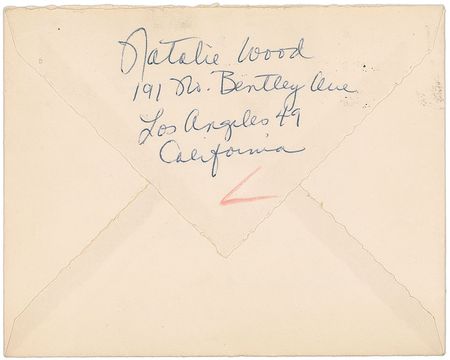 Natalie Wood
191 No. Bentley Ave
Los Angeles 49
California